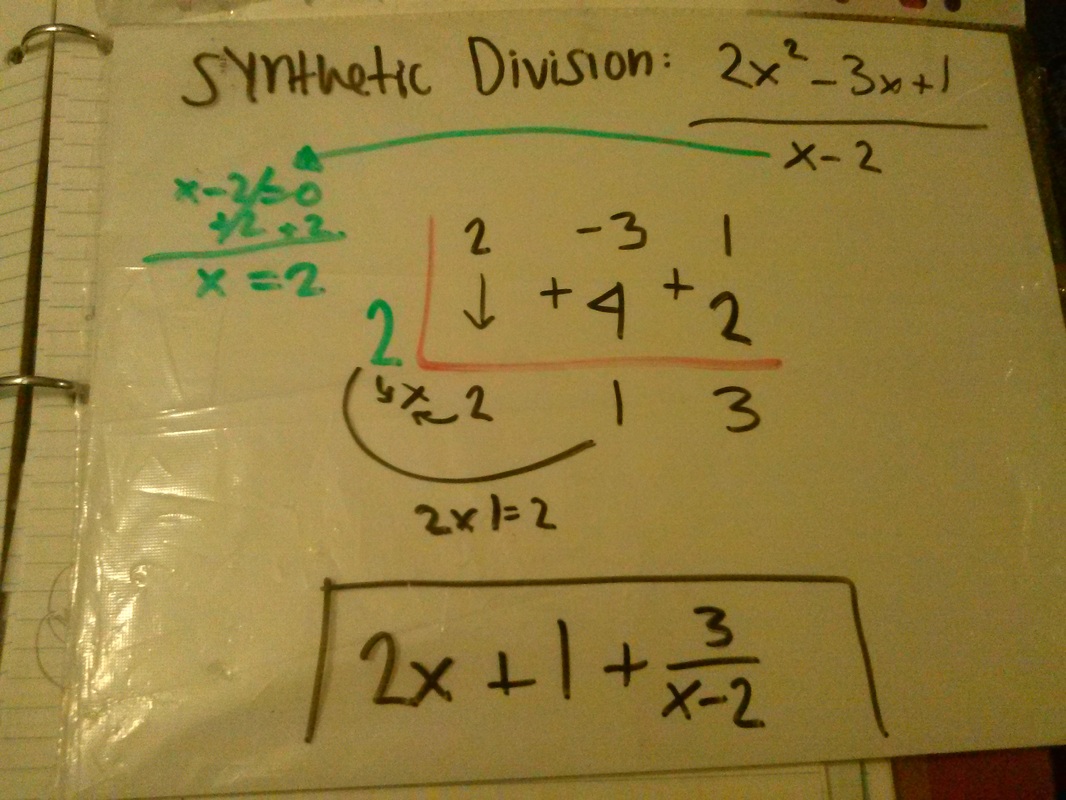 Synthetic Division: 2x² - 3x + 1
x - 2
x - 2 = 0
+2 +2
x = 2
2 -3 1
↓ + 4 + 2
2
x 2 1 3
2x1=2
2x + 1 + 3
x-2